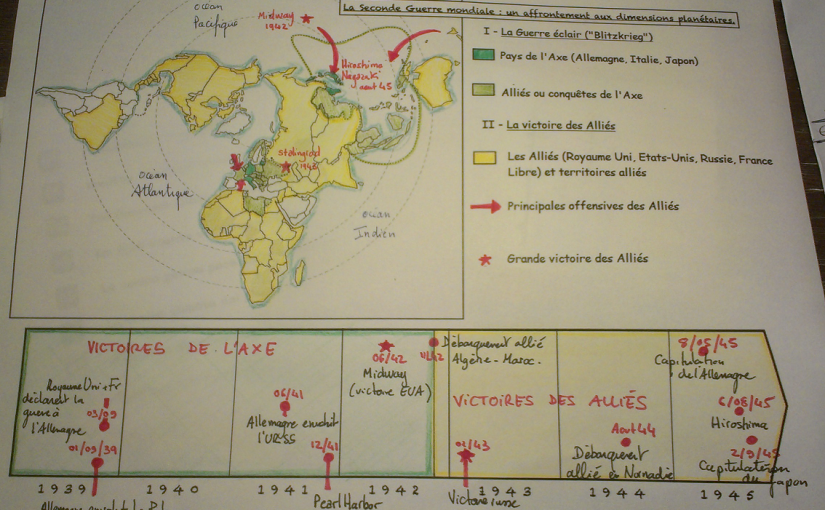 La Seconde Guerre mondiale : un affrontement aux dimensions planétaires.
océan
Pacifique
Midway
1942
Hiroshima
Nagazaki
aout 45
Stalingrad
océan
Atlantique
océan
Indien
I - La Guerre éclair ("Blitzkrieg")
Pays de l'Axe (Allemagne, Italie, Japon)
Alliés ou conquêtes de l'Axe
II - La victoire des Alliés
Les Alliés (Royaume Uni, Etats-Unis, Russie, France
Libre) et territoires alliés
Principales offensives des Alliés
Grande victoire des Alliés
VICTOIRES DE L'AXE
Royaume Uni + Fr
déclarent la
guerre à
l'Allemagne
03/09
01/09/39
06/41
Allemagne envahit
l'URSS
12/41
06/42
Midway
(victoire EUA)
11/42
Débarquement allié
Algérie - Maroc.
VICTOIRES DES ALLIÉS
02/43
Aout 44
Débarquement
allié en Normadie
8/05/45
Capitulation
de l'Allemagne
6/08/45
Hiroshima
2/9/45
Capitulation
du Japon
1939 1940 1941 1942 1943 1944 1945
Pearl Harbor
Victoire russe